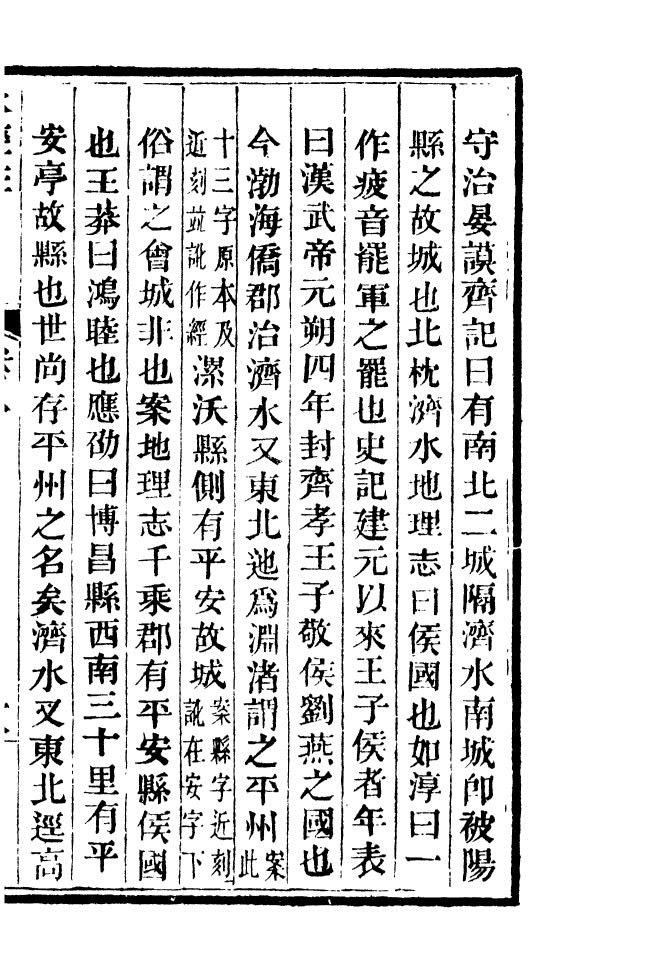 守治晏謨齊記曰有南北二城隔濟水南城卽被陽
縣之故城也北枕濟水地理志曰侯國也如淳曰一
作疲音罷軍之罷也史記建元以來王子侯者年表
曰漢武帝元朔四年封齊孝王子敬侯劉燕之國也
今渤海僑郡治濟水又東北迆爲淵渚謂之平州案此
十三字原本及近刻並訛作經漯沃縣側有平安故城案縣字近刻訛在安字下
俗謂之會城非也案地理志千乘郡有平安縣侯國
也王莽曰鴻睦也應劭曰博昌縣西南三十里有平
安亭故縣也世尚存平州之名矣濟水又東北逕高